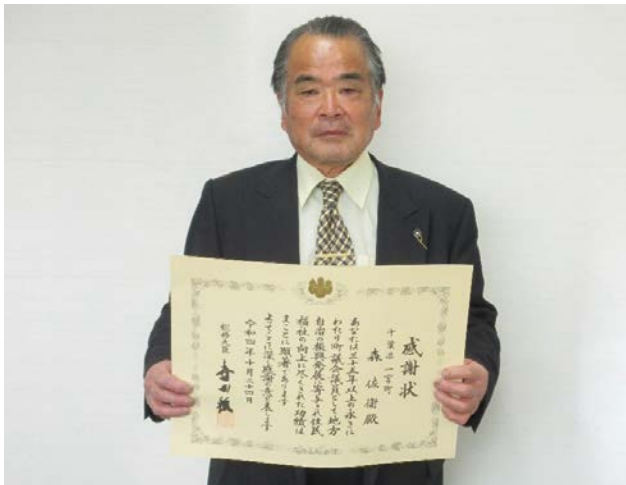 感謝状
千葉県一宮町
森佐衛殿
あなたは三十五年以上の永きに
わたり町議会議員として地方
自治の振興発展に寄与され住民
福祉の向上に尽くされた功績は
まことに顕著であります
よってここに深く感謝の意を表します
令和四年十月二十四日
総務大臣 寺田稔